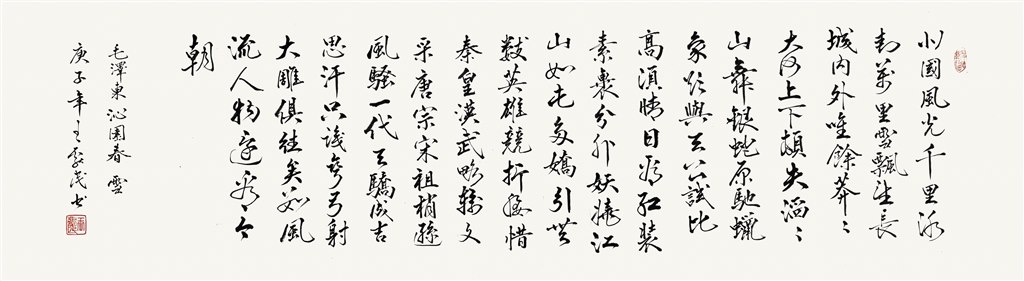 北國風光千里冰
封萬里雪飄望長
城內外唯餘莽〻
大河上下頓失滔〻
山舞銀蛇原馳蠟
象欲與天公試比
高須晴日看紅裝
素裹分外妖嬈江
山如此多嬌引無
數英雄競折腰惜
秦皇漢武略輸文
采唐宗宋祖稍遜
風騷一代天驕成吉
思汗只識彎弓射
大雕俱往矣數風
流人物還看今
朝
毛澤東 沁園春 雪
庚子年王書